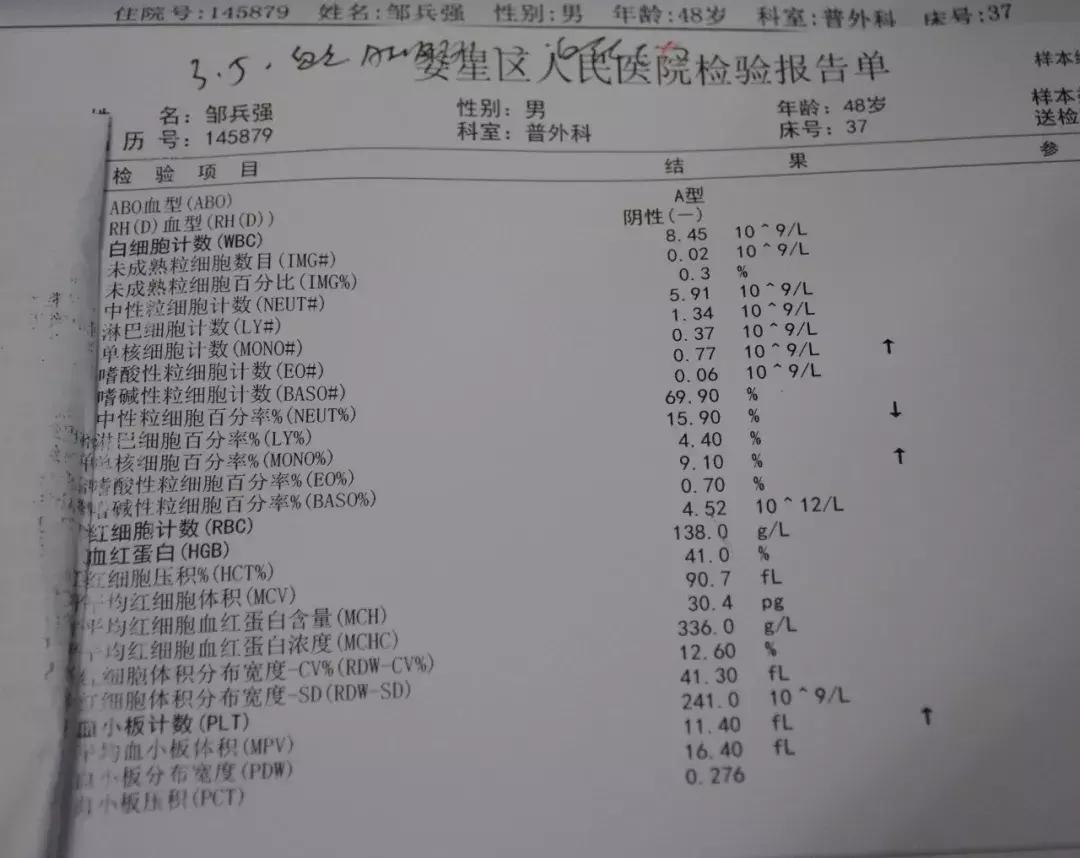 住院号:145879 姓名:邹兵强 性别:男 年龄:48岁 科室:普外科 床号:37
3.5.
娄星区人民医院检验报告单
名: 邹兵强 性别: 男 年龄: 48岁 样本
历号: 145879 科室: 普外科 床号: 37 送检
检验项目 结果 参
ABO血型(ABO) A型
RH(D)血型(RH(D)) 阴性(—)
白细胞计数(WBC) 8.45 10^9/L
未成熟粒细胞数目(IMG#) 0.02 10^9/L
未成熟粒细胞百分比(IMG%) 0.3 %
中性粒细胞计数(NEUT#) 5.91 10^9/L
淋巴细胞计数(LY#) 1.34 10^9/L
单核细胞计数(MONO#) 0.37 10^9/L
嗜酸性粒细胞计数(EO#) 0.77 10^9/L ↑
嗜碱性粒细胞计数(BASO#) 0.06 10^9/L
中性粒细胞百分率%(NEUT%) 69.90 %
淋巴细胞百分率%(LY%) 15.90 % ↓
单核细胞百分率%(MONO%) 4.40 %
嗜酸性粒细胞百分率%(EO%) 9.10 % ↑
嗜碱性粒细胞百分率%(BASO%) 0.70 %
红细胞计数(RBC) 4.52 10^12/L
血红蛋白(HGB) 138.0 g/L
红细胞压积%(HCT%) 41.0 %
平均红细胞体积(MCV) 90.7 fL
平均红细胞血红蛋白含量(MCH) 30.4 pg
平均红细胞血红蛋白浓度(MCHC) 336.0 g/L
红细胞体积分布宽度-CV%(RDW-CV%) 12.60 %
红细胞体积分布宽度-SD(RDW-SD) 41.30 fL
血小板计数(PLT) 241.0 10^9/L
平均血小板体积(MPV) 11.40 fL ↑
血小板分布宽度(PDW) 16.40 fL
血小板压积(PCT) 0.276